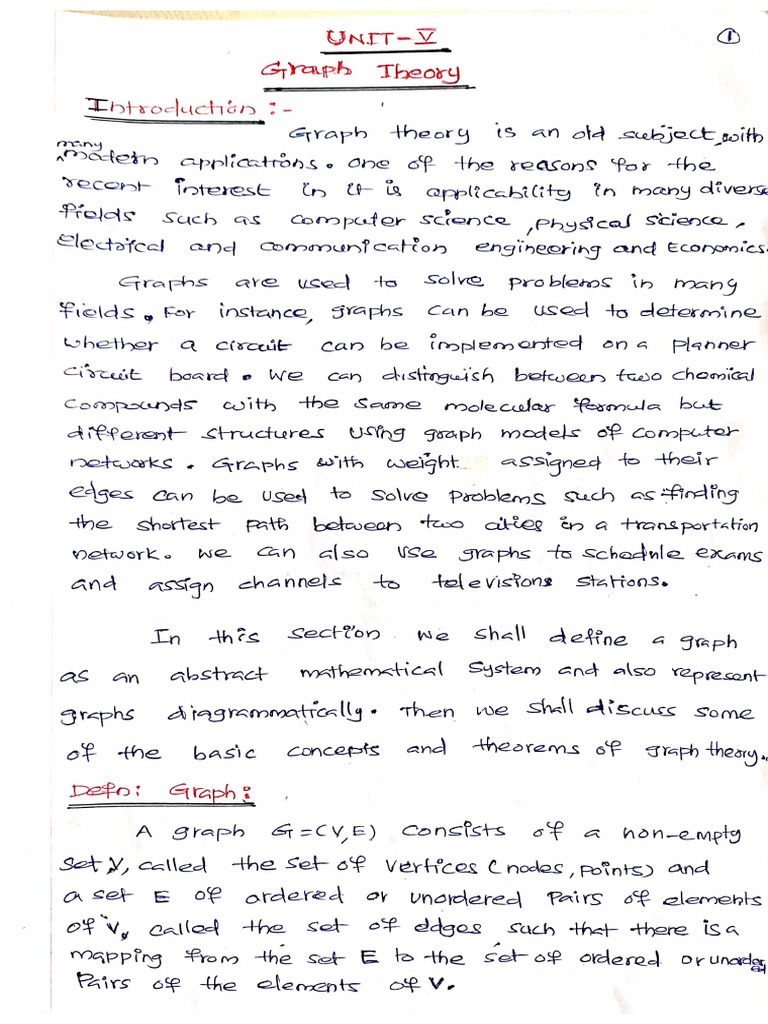 UNIT-V
1
Graph Theory
Introduction:-
Graph theory is an old subject, with
many
modern applications. One of the reasons for the
recent interest in it is applicability in many diverse
fields such as computer science, physical science,
Electrical and communication engineering and Economics.
Graphs are used to solve problems in many
fields. For instance, graphs can be used to determine
whether a circuit can be implemented on a planner
circuit board. We can distinguish between two chemical
compounds with the same molecular formula but
different structures using graph models of computer
networks. Graphs with weight assigned to their
edges can be used to solve problems such as finding
the shortest path between two cities in a transportation
network. We can also use graphs to schedule exams
and assign channels to televisions stations.
In this section we shall define a graph
as an abstract mathematical system and also represent
graphs diagrammatically. Then we shall discuss some
of the basic concepts and theorems of graph theory.
Defn: Graph:
A graph G=(V,E) consists of a non-empty
set V, called the set of vertices (nodes, points) and
a set E of ordered or unordered pairs of elements
of V, called the set of edges such that there is a
mapping from the set E to the set of ordered or unordered
Pairs of the elements of V.